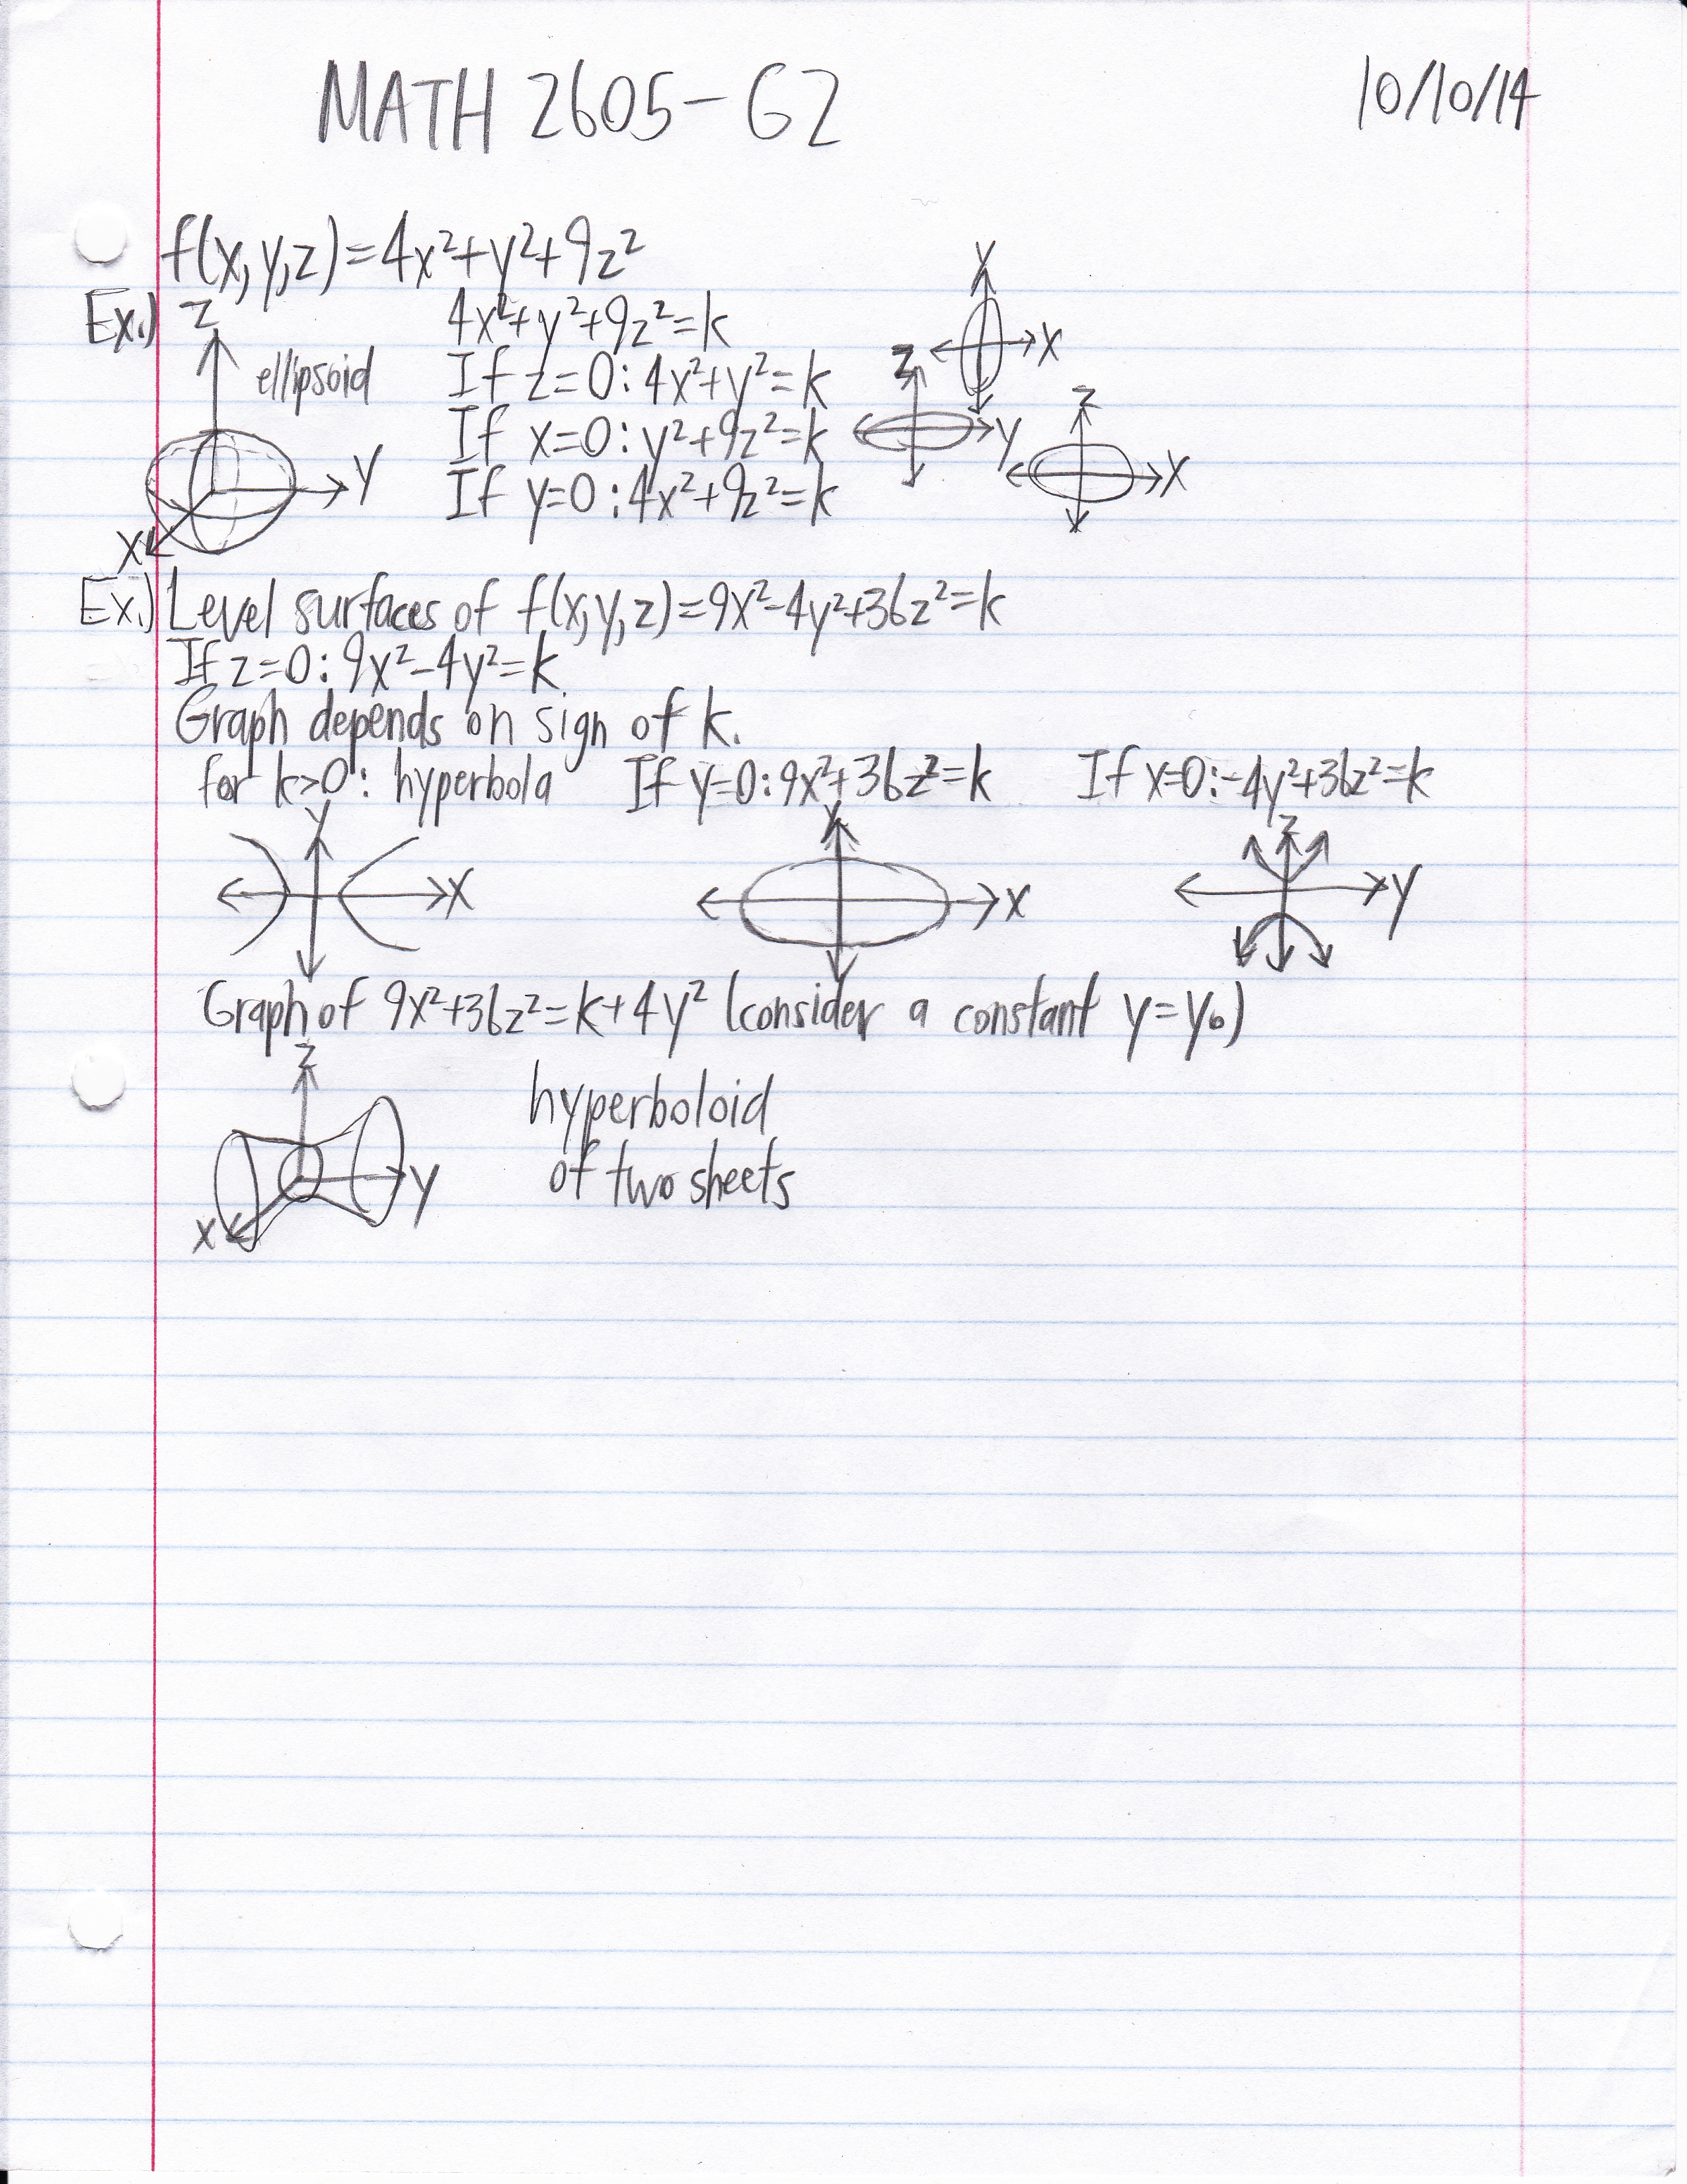 MATH 2605-G2
10/10/14
f(x,y,z)=4x²+y²+9z²
Ex.)
4x²+y²+9z²=k
ellipsoid
If z=0: 4x²+y²=k
If x=0: y²+9z²=k
If y=0: 4x²+9z²=k
Z
Y
X
Y
X
Z
Y
Z
X
Ex.) Level surfaces of f(x,y,z)=9x²-4y²+36z²=k
If z=0: 9x²-4y²=k
Graph depends on sign of k.
for k>0: hyperbola If y=0: 9x²+36z²=k If x=0: -4y²+36z²=k
Y
X
Y
X
Z
Y
Graph of 9x²+36z²=k+4y² (consider a constant y=y₀)
Z
Y
X
hyperboloid
of two sheets